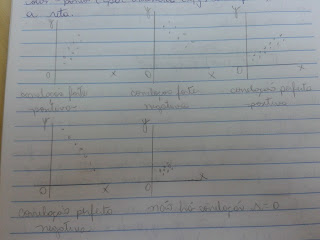 a reta.
y y y
0 x 0 x 0 x
correlação forte correlação forte correlação perfeita
positiva negativa positiva
y y
0 x 0 x
correlação perfeita não há correlação r = 0
negativa